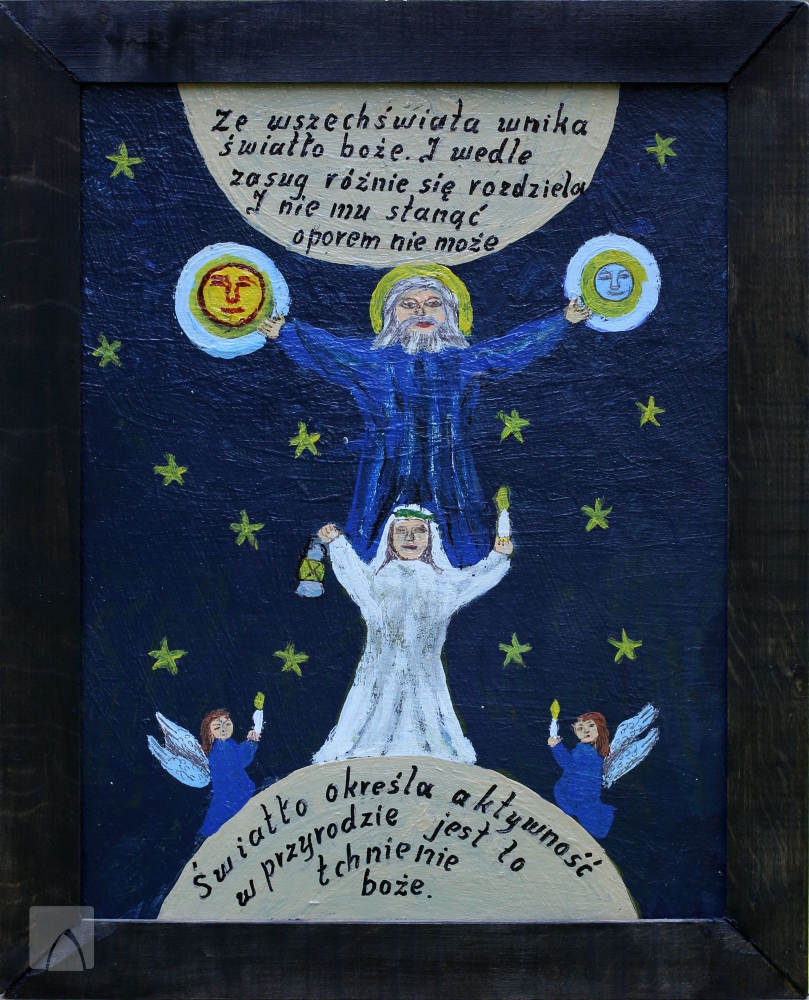 Ze wszechświata wnika
światło boże. I wedle
zasug różnie się rozdziela
I nie mu stanąć
oporem nie może
Światło określa aktywność
w przyrodzie jest to
tchnienie
boże.